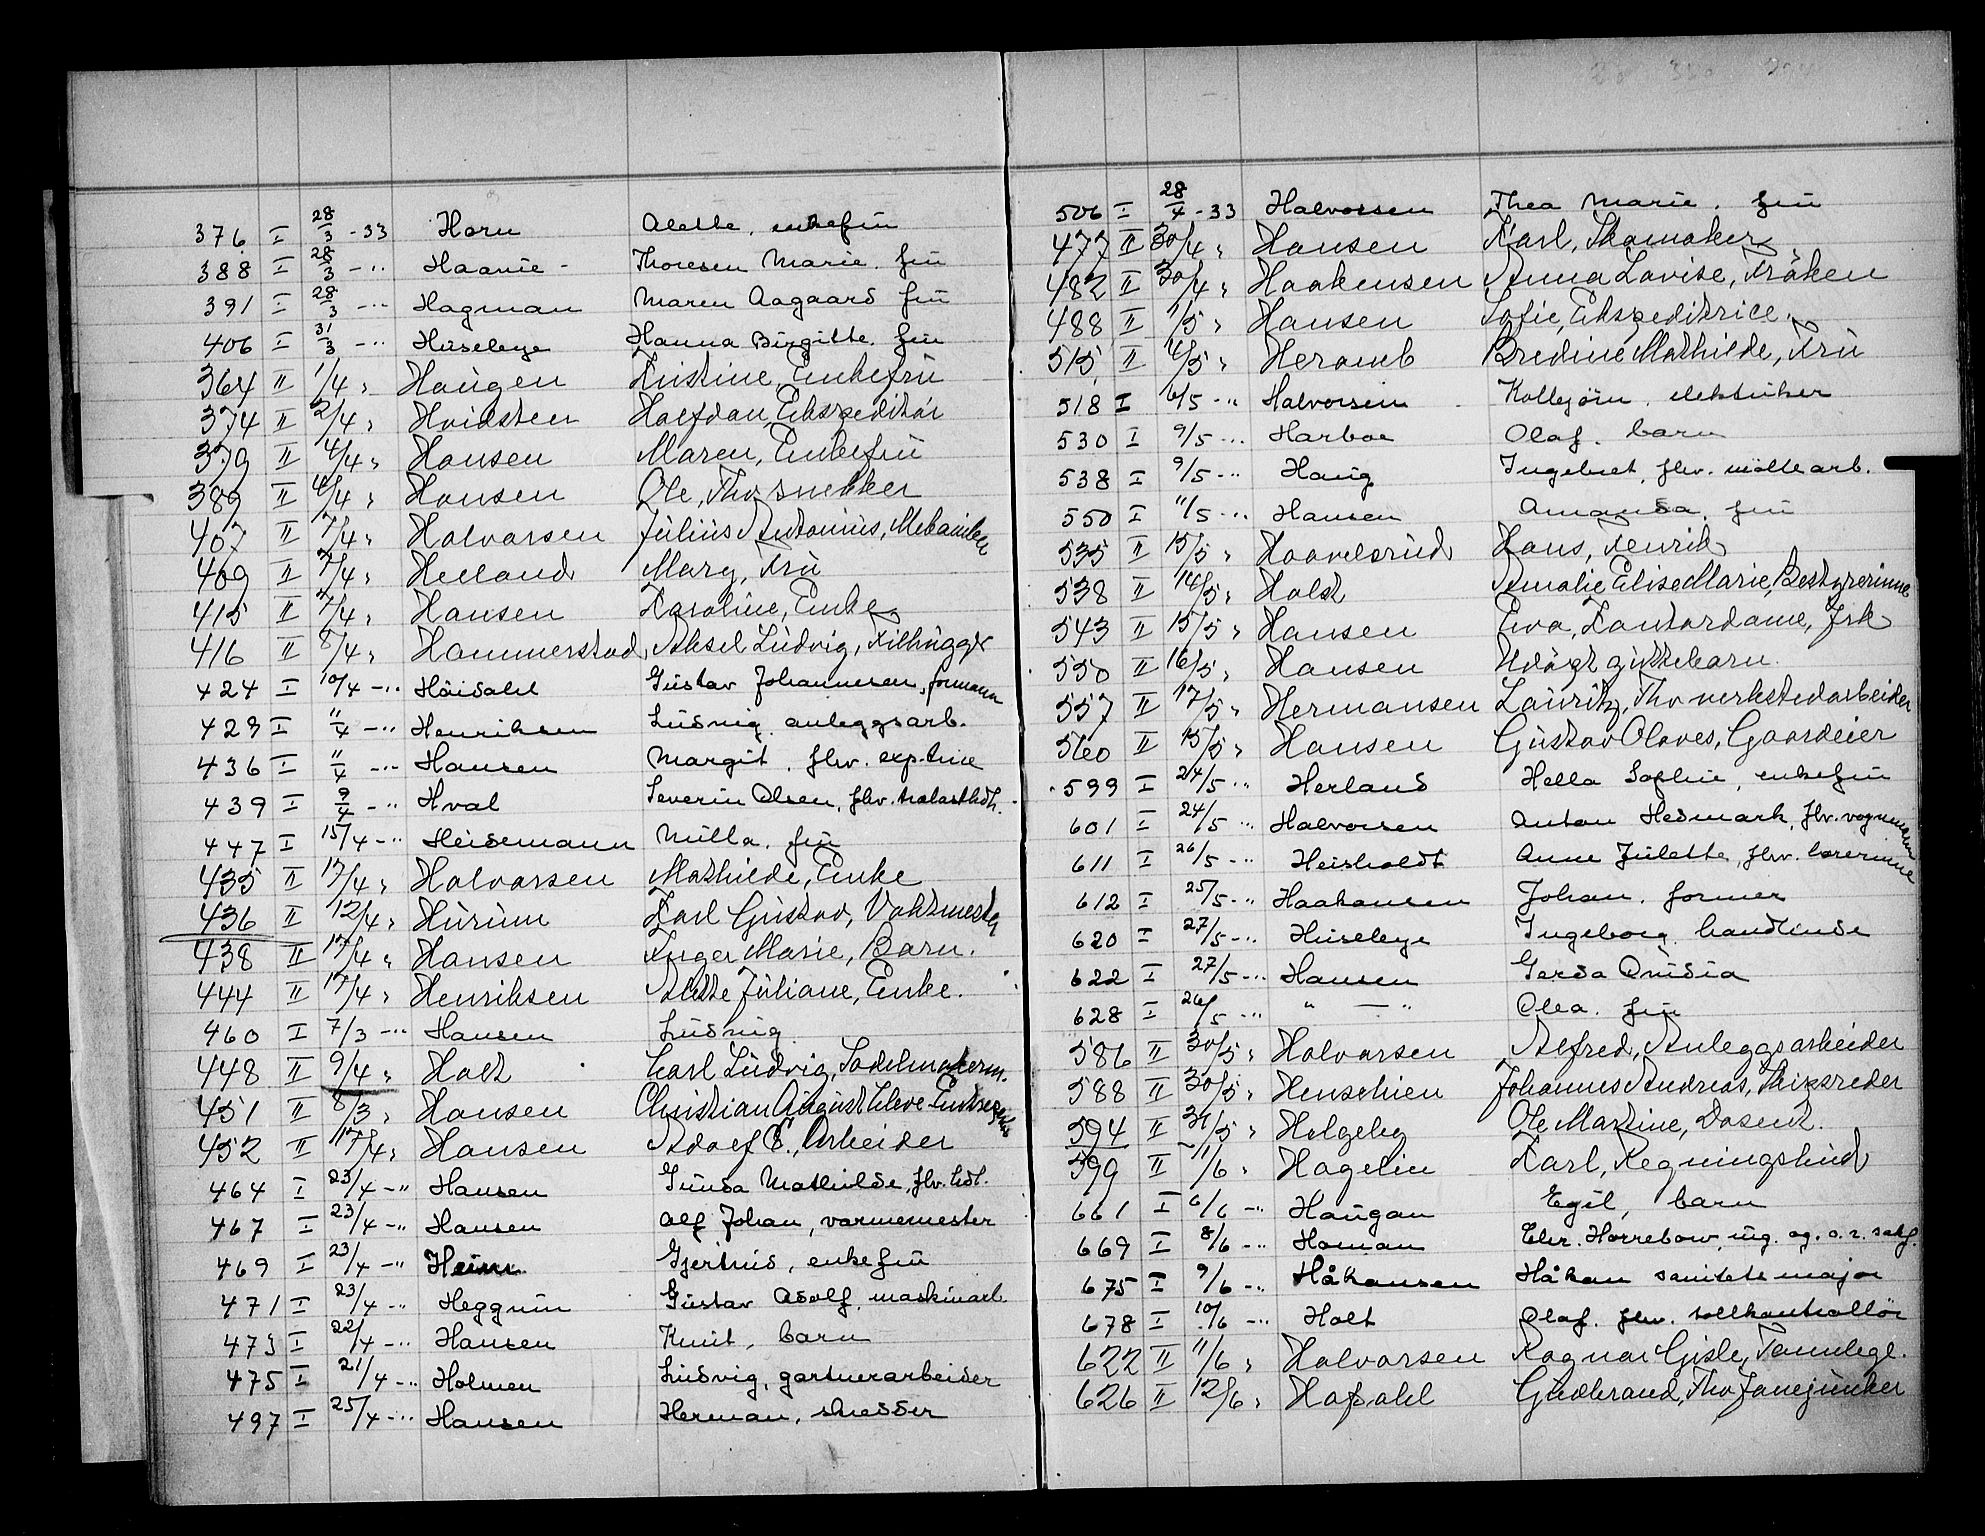 376 I 28/3 -33 Horn Alette, enkefru
388 I 28/3 -"- Haarie - Thoresen Marie. fru
391 I 28/3 -"- Hagman Maren Aagaard fru
406 I 31/3 -"- Huseleye Hanna Birgitte. fru
364 II 1/4 " Haugen Kristine, Enkefru
374 II 2/4 " Hvidsten Halfdan, Ekspeditør
379 II 4/4 " Hansen Maren, Enkefru
389 II 4/4 " Hansen Ole, Fhv. snekker
407 II 7/4 " Halvorsen Julius Antonius, Mekaniker
409 II 7/4 " Heeland Mary, Fru
415 II 7/4 " Hansen Karoline, Enke
416 II 8/4 " Hammerstad, Aksel Ludvig, Filhugger
424 I 10/4 -"- Höidahl Gustav Johannesen, formann
429 I 11/4 -"- Henriksen Ludvig anleggsarb.
436 I 11/4 -"- Hansen Margit. fhv. exp.trice
439 I 9/4 -"- Hval Severin Olsen, fhv. trelasthdl.
447 I 15/4 -"- Heidemann Milla. fru
435 II 12/4 " Halvorsen Mathilde, Enke
436 II 12/4 " Hurum Karl Gustav, Vaktmester
438 II 12/4 " Hansen Inger Marie, Barn.
444 II 12/4 " Henriksen Alette Juliane, Enke.
460 I 7/3 -"- Hansen Ludvig
448 II 9/4 " Holt Carl Ludvig, Sadelmakerm.
451 II 8/3 " Hansen Christian August Cleve
452 II 17/4 " Hansen Adolf E., Arbeider
464 I 23/4 -"- Hansen Gunda Mathilde, fhv. hdl.
467 I 23/4 -"- Hansen Alf Johan, varmemester
469 I 23/4 -"- Heim Gjertrud, enkefru
471 I 23/4 -"- Heggrun Gustav Adolf, maskinarb.
473 I 22/4 -"- Hansen Knut, barn
475 I 21/4 -"- Holmen Ludvig, gartnerarbeider
497 I 25/4 -"- Hansen Herman, skredder
506 I 28/4 -33 Halvorsen Thea Marie. fru
477 II 30/4 " Hansen Karl, Skomaker
482 II 30/4 " Haakensen Anna Lovise, Frøken
488 II 1/5 " Hansen Sofie, Ekspeditrice.
515 II 4/5 " Heramb Bredine Mathilde, Fru
518 I 6/5 -"- Halvorsen Kolbjörn, elektriker
530 I 9/5 -"- Harboe Olaf. barn
538 I 9/5 -"- Haug Ingebret, fhv. möllearb.
550 I 11/5 -"- Hansen Amanda, fru
535 II 15/5 " Haavelsrud Hans, Fenrik
538 II 14/5 " Holst Amalie Elise Marie, Bestyrerinne
543 II 15/5 " Hansen Eva, Kontordame, frk
550 II 16/5 " Hansen Udøpt guttebarn.
557 II 17/5 " Hermansen Lauritz, Fhv verkstedarbeider
560 II 15/5 " Hansen Gustav Olaves, Gaardeier
599 I 24/5 -"- Herland Hella Sophie, enkefru
601 I 24/5 -"- Halvorsen Anton Hedmark, fhv. vognmann
611 I 26/5 -"- Heisholdt Anne Julette, fhv. lærerinne
612 I 25/5 -"- Haakonsen Johan. former
620 I 27/5 -"- Huseleye Ingeborg handlende
622 I 27/5 -"- Hansen Gerda
628 I 26/5 -"- " — " Olea. fru
586 II 30/5 " Halvorsen Alfred, Anleggsarbeider
588 II 30/5 " Henschien Johannes Andreas, Skipsreder
594 II 31/5 " Helgeby Ole Martine, Dosent.
599 II 1/6 " Hagelin Karl, Regningsbud
661 I 6/6 -"- Haugan Egil, barn
669 I 8/6 -"- Homan Chr. Horrebow, ing. og. o. r. sakf.
675 I 9/6 -"- Håkansen Håkan sanitetsmajor
678 I 10/6 -"- Holt Olaf. fhv. tollkontrollör
622 II 11/6 " Halvorsen Ragnar Gisle, Tannlege.
626 II 12/6 " Hafsahl Gudbrand, Fhv